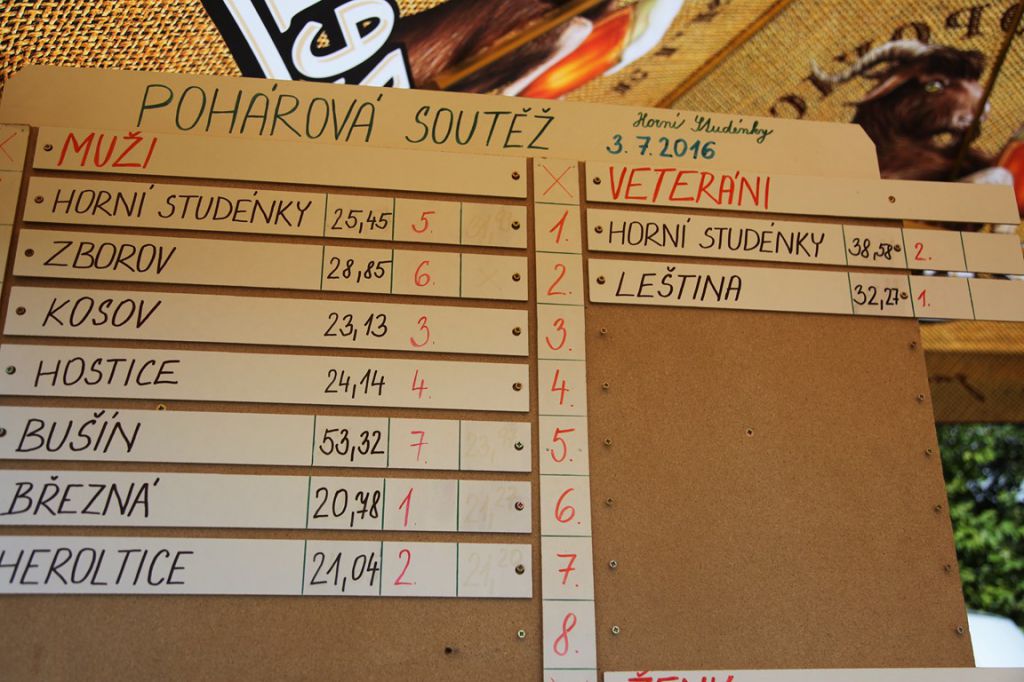 POHÁROVÁ SOUTĚŽ
Horní Studénky
3.7.2016
MUŽI
HORNÍ STUDÉNKY 25,45 5.
ZBOROV 28,85 6.
KOSOV 23,13 3.
HOSTICE 24,14 4.
BUŠÍN 53,32 7.
BŘEZNÁ 20,78 1.
HEROLTICE 21,04 2.
X
1.
2.
3.
4.
5.
6.
7.
8.
VETERÁNI
HORNÍ STUDÉNKY 38,58 2.
LEŠTINA 32,27 1.